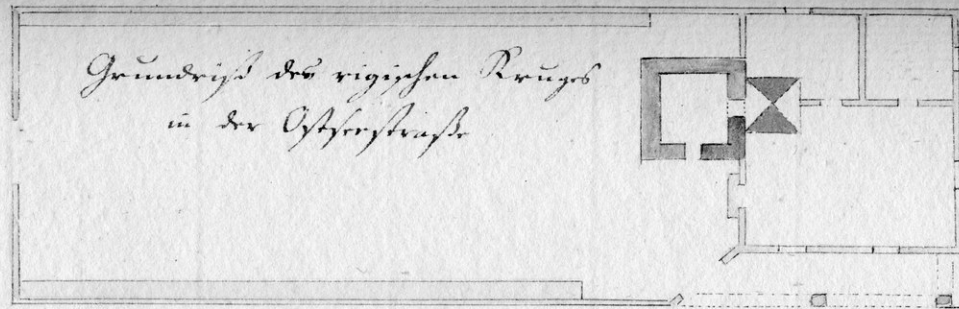 Grundriß des rigischen Kruges
in der Ostseestraße